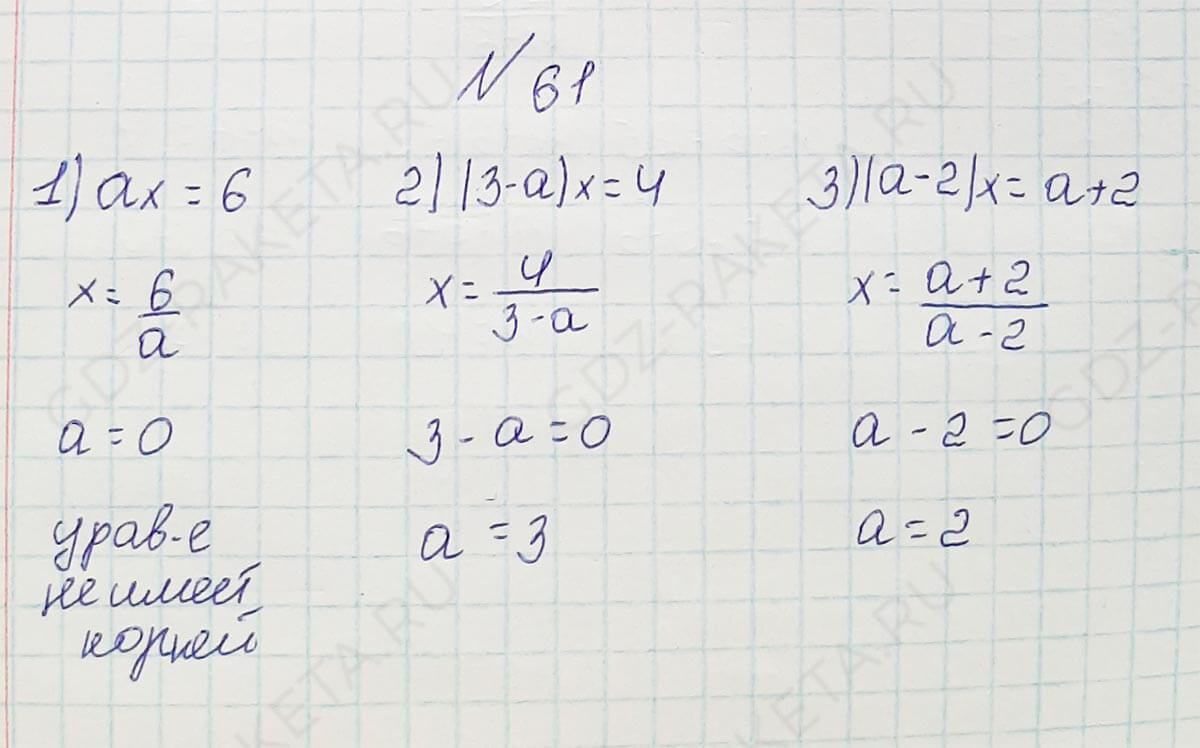 N 61
1) ax = 6
x = 6/a
a = 0
урав-е
не имеет
корней
2) (3-a)x = 4
x = 4/(3-a)
3 - a = 0
a = 3
3) (a-2)x = a+2
x = (a+2)/(a-2)
a - 2 = 0
a = 2
GDZ-RAKETA.RU
GDZ-RAKETA.RU